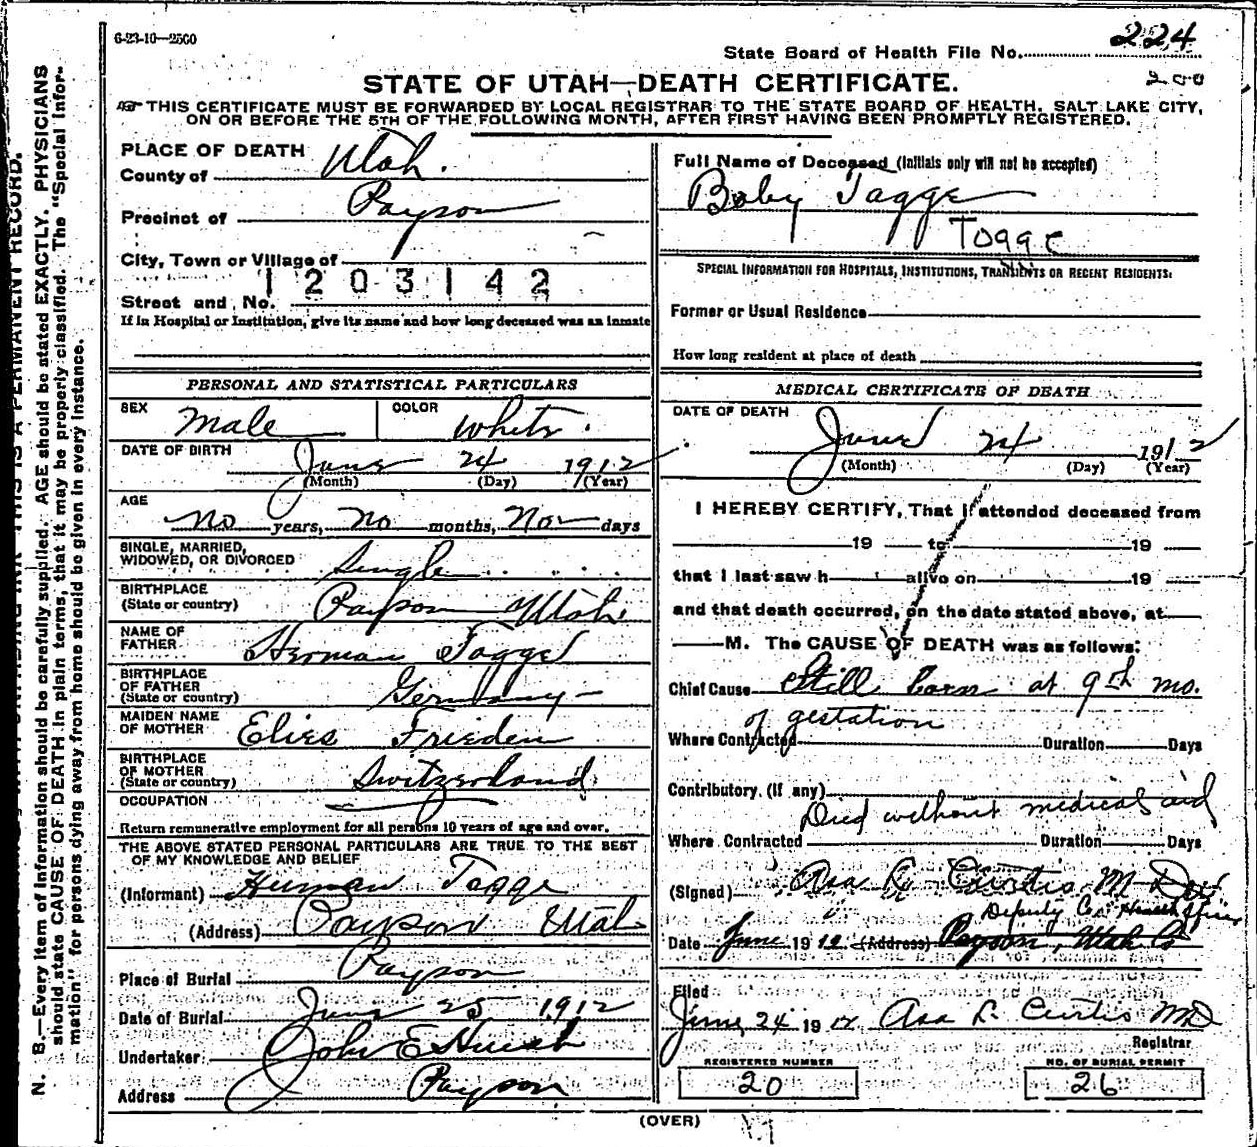 6-23-10—2500
State Board of Health File No. 224
200
STATE OF UTAH—DEATH CERTIFICATE.
THIS CERTIFICATE MUST BE FORWARDED BY LOCAL REGISTRAR TO THE STATE BOARD OF HEALTH, SALT LAKE CITY,
ON OR BEFORE THE 5TH OF THE FOLLOWING MONTH, AFTER FIRST HAVING BEEN PROMPTLY REGISTERED.
PLACE OF DEATH
County of Utah.
Precinct of Payson
City, Town or Village of
1203142
Street and No.
If in Hospital or Institution, give its name and how long deceased was an inmate
PERSONAL AND STATISTICAL PARTICULARS
SEX Male COLOR White.
DATE OF BIRTH
June 24 1912
(Month) (Day) (Year)
AGE
No years, No months, Non days
SINGLE, MARRIED,
WIDOWED, OR DIVORCED Single
BIRTHPLACE
(State or country) Payson Utah.
NAME OF
FATHER Herman Tagge
BIRTHPLACE
OF FATHER
(State or country) Germany
MAIDEN NAME
OF MOTHER Elies Frieden
BIRTHPLACE
OF MOTHER
(State or country) Switzerland
OCCUPATION
Return remunerative employment for all persons 10 years of age and over.
THE ABOVE STATED PERSONAL PARTICULARS ARE TRUE TO THE BEST
OF MY KNOWLEDGE AND BELIEF
(Informant) Herman Tagge
(Address) Payson Utah
Place of Burial Payson
Date of Burial June 25 1912
Undertaker John E Huish
Address Payson
Full Name of Deceased (Initials only will not be accepted)
Baby Tagge
Togge
SPECIAL INFORMATION FOR HOSPITALS, INSTITUTIONS, TRANSIENTS OR RECENT RESIDENTS:
Former or Usual Residence
How long resident at place of death
MEDICAL CERTIFICATE OF DEATH
DATE OF DEATH
June 24 1912
(Month) (Day) (Year)
I HEREBY CERTIFY, That I attended deceased from
19 to 19
that I last saw h alive on 19
and that death occurred, on the date stated above, at
M. The CAUSE OF DEATH was as follows:
Chief Cause Still born at 9th mo.
of gestation
Where Contracted Duration Days
Contributory (if any)
Died without medical aid
Where Contracted Duration Days
(Signed) Asa L Curtis M D
Deputy Co. Health Officer
Date June 1912 (Address) Payson, Utah Co
Filed
June 24 1912 Asa L Curtis MD
Registrar
REGISTERED NUMBER
20
NO. OF BURIAL PERMIT
26
(OVER)
N. B.—Every item of information should be carefully supplied. AGE should be stated EXACTLY. PHYSICIANS
should state CAUSE OF DEATH in plain terms, that it may be properly classified. The "Special Infor-
mation" for persons dying away from home should be given in every instance.
THIS IS A PERMANENT RECORD.